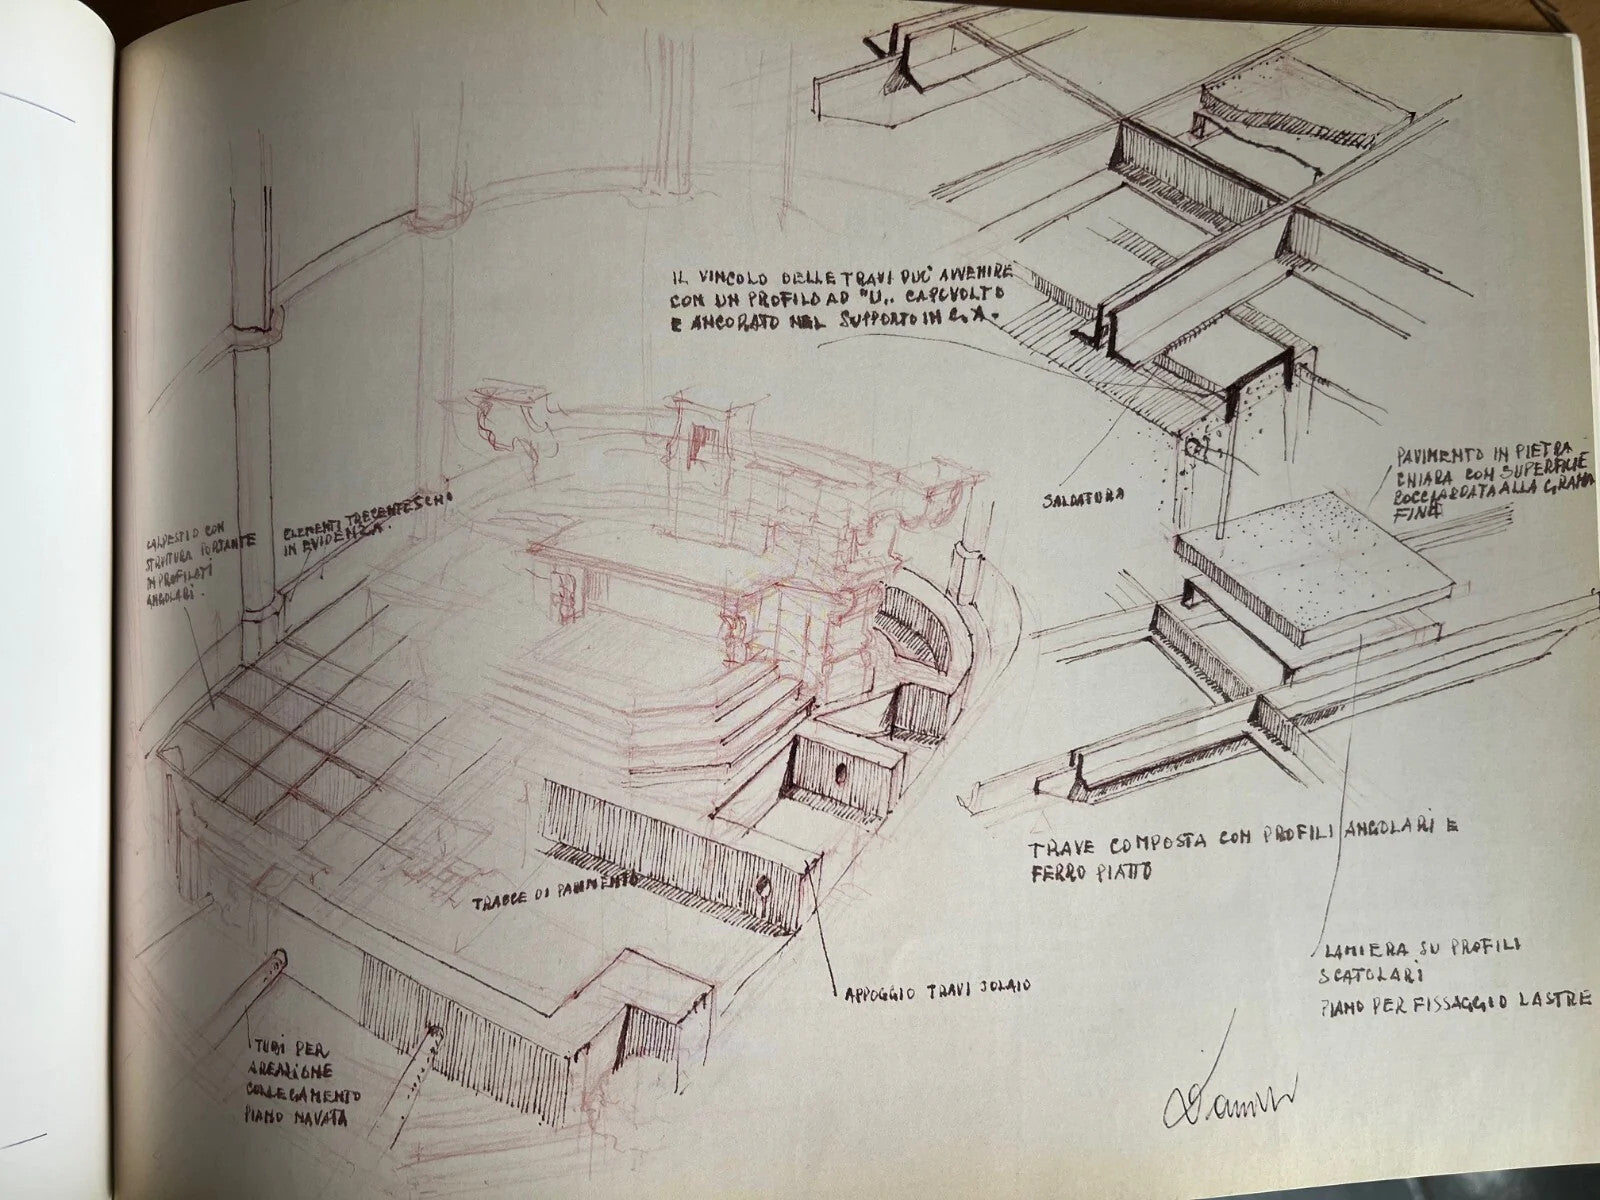 IL VINCOLO DELLE TRAVI PUO' AVVENIRE
CON UN PROFILO AD "U" CAPOVOLTO
E ANCORATO NEL SUPPORTO IN C.A.
SALDATURA
PAVIMENTO IN PIETRA
CHIARA CON SUPERFICIE
BOCCIARDATA ALLA GRANA
FINE
ELEMENTI TRECENTESCHI
IN EVIDENZA.
CALPESTIO CON
STRUTTURA PORTANTE
IN PROFILATI
ANGOLARI.
TRAVE COMPOSTA CON PROFILI ANGOLARI E
FERRO PIATTO
TRACCE DI PAVIMENTO
LAMIERA SU PROFILI
SCATOLARI
PIANO PER FISSAGGIO LASTRE
APPOGGIO TRAVI SOLAIO
TUBI PER
AREAZIONE
COLLEGAMENTO
PIANO NAVATA